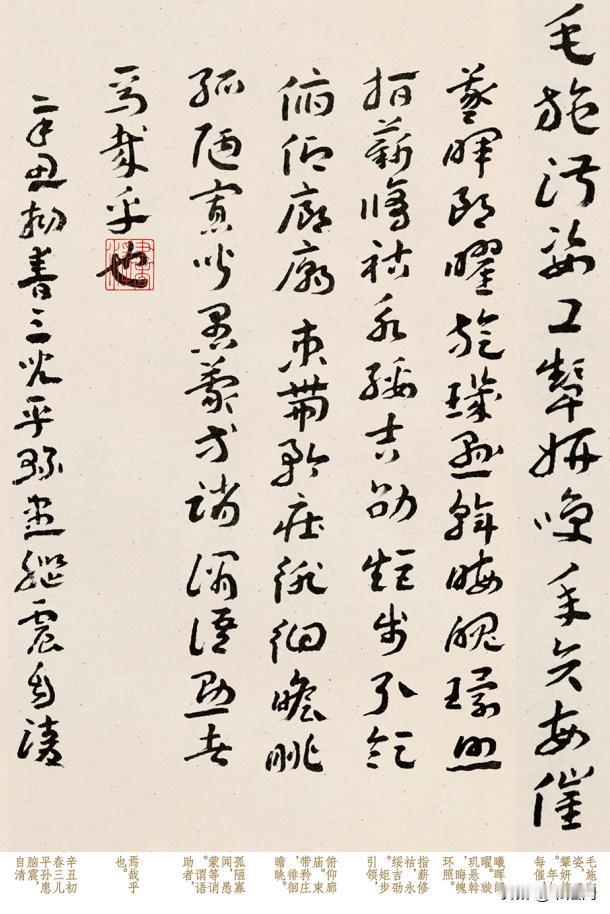 毛施淑姿工顰妍咲年矢每催
羲暉朗曜旋璣懸斡晦魄環照
指薪脩祜永綏吉劭矩步引領
俯仰廊廟束帶矜莊徘徊瞻眺
孤陋寡聞愚蒙等誚謂語助者
焉哉乎也
辛丑初春三兒平孫患腦震自清
毛施
姿,
颦妍
。年
每催
曦晖
曜。璇
玑悬斡
,晦魄
环照。
指薪修
祜,永
绥吉劭
。矩步
引领,
俯仰廊
庙。束
带矜庄
,徘徊
瞻眺。
孤陋寡
闻,愚
蒙等诮
。谓语
助者,
焉哉乎
也。
辛丑初
春三儿
平孙患
脑震
自清